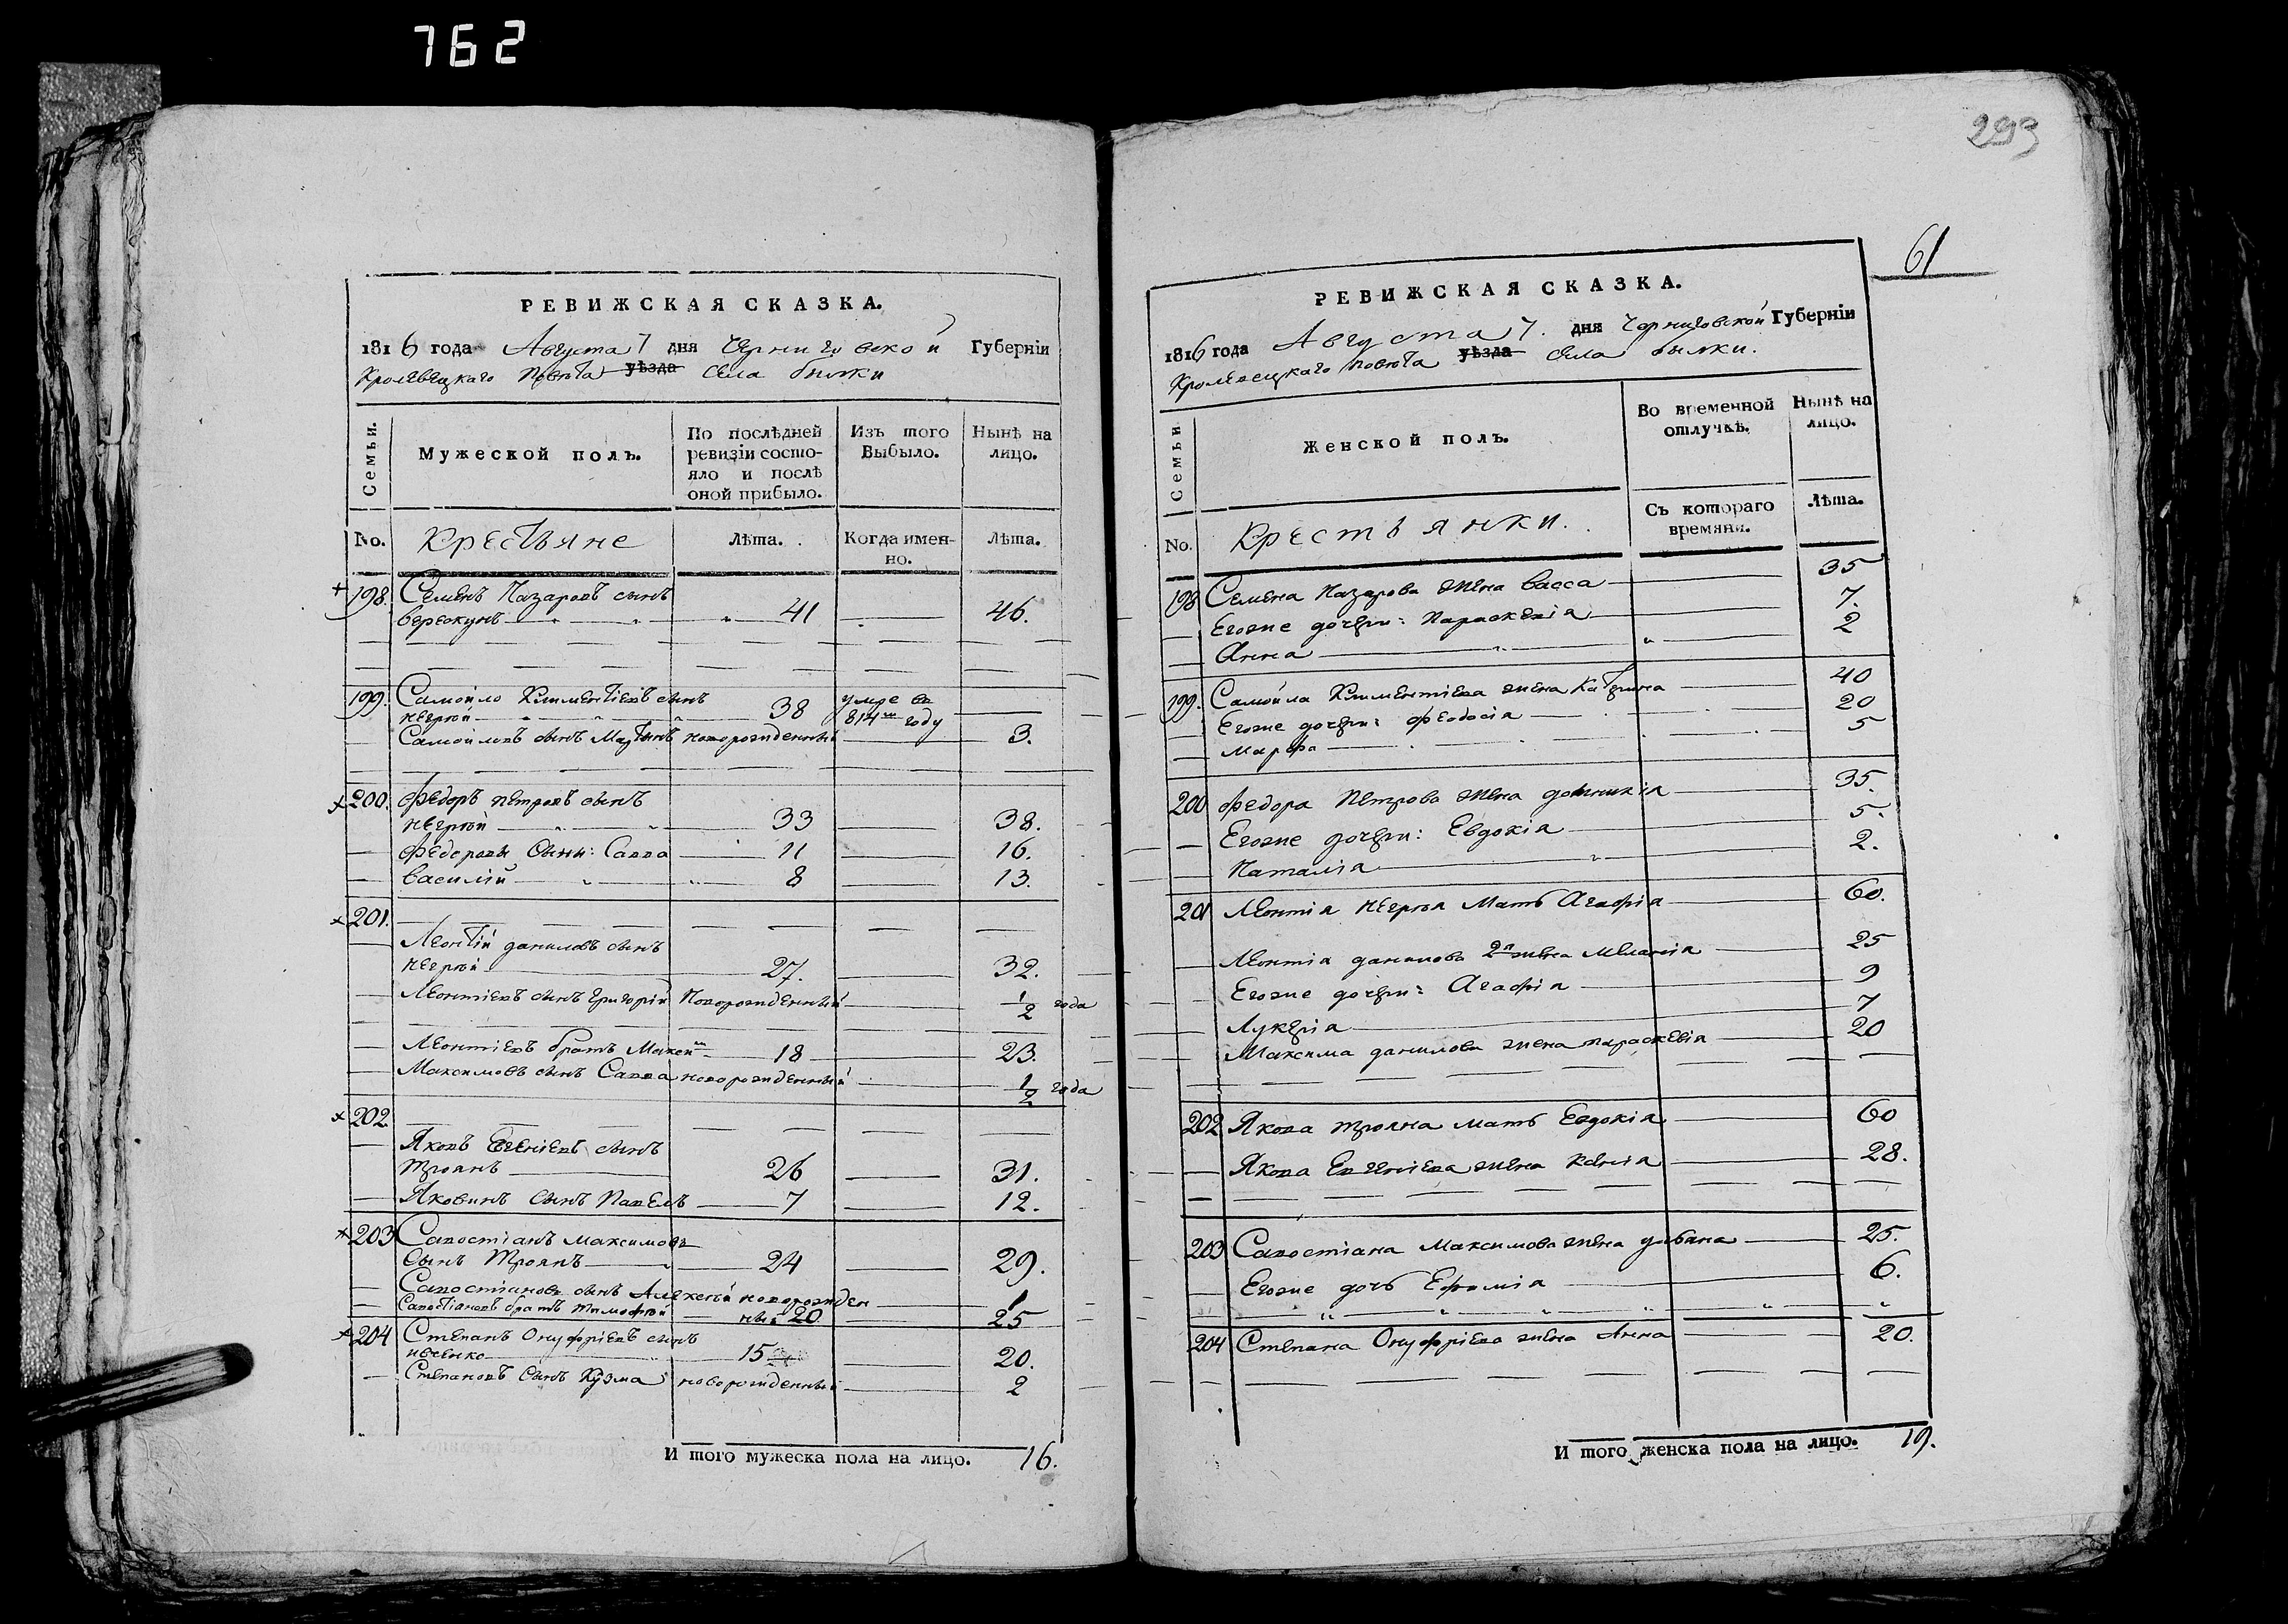 762
РЕВИЖСКАЯ СКАЗКА.
1816 года Августа 7 дня Черниговской Губерніи
Кролевецкаго Повѣта уѣзда Села Билки
Семьи.
Мужеской полъ.
По послѣдней
ревизіи состо-
яло и послѣ
оной прибыло.
Изъ того
Выбыло.
Нынѣ на
лицо.
No. Крестьяне Лѣта. Когда имен-
но. Лѣта.
198. Семенъ Назаровъ сынъ
Верескунъ 41 46.
199. Самойло Климентіевъ сынъ умре въ
Негрѣй 38 814м году
Самойловъ сынъ Мартынъ новорожденный 3.
200. Федоръ Петровъ сынъ
Негрѣй 33 38.
Федоровы Сыны: Савва 11 16.
Василій 8 13.
201.
Леонтій даниловъ сынъ
Негрѣй 27. 32.
Леонтіевъ сынъ Григорій Новорожденный 1/2 года
Леонтіевъ братъ Максим 18 23.
Максимовъ сынъ Савва новорожденный 1/2 года
202.
Яковъ Евгеніевъ сынъ
Троянъ 26 31.
Яковинъ Сынъ Павелъ 7 12.
203 Савостіанъ Максимовъ
Сынъ Троянъ 24 29.
Савостіановъ сынъ Алексѣй новорожден 1
Савостіановъ братъ Тимофѣй ный 20 25
204 Степанъ Онуфріевъ сынъ
Ивенко 15 20.
Степановъ Сынъ Кузма новорожденный 2
И того мужеска пола на лицо. 16.
293
61
РЕВИЖСКАЯ СКАЗКА.
1816 года Августа 7. дня Черниговской Губерніи
Кролевецкаго Повѣта уѣзда Села Билки.
Семьи.
Женской полъ.
Во временной
отлучкѣ.
Нынѣ на
лицо.
No. Крестьянки. Съ котораго
времяни. Лѣта.
198 Семена Назарова жена Васса 35
Егоже дочери: Параскевія 7.
Анна 2
199. Самойла Климентіева жена Катерина 40
Егоже дочери: Феодосія 20
Марфа 5
200 Федора Петрова жена домникія 35.
Егоже дочери: Евдокія 5.
Наталія 2.
201 Леонтія Негрѣя Мать Агафія 60.
Леонтія данилова 2я жена Меланія 25
Егоже дочери: Агафія 9
Лукерія 7
Максима данилова жена параскевія 20
202 Якова трояна мать Евдокія 60
Якова Евгеніева жена Ксенія 28.
203 Савостіана Максимова жена уліяна 25.
Егоже дочь Ефимія 6.
204 Степана Онуфріева жена Анна 20.
И того женска пола на лицо. 19.